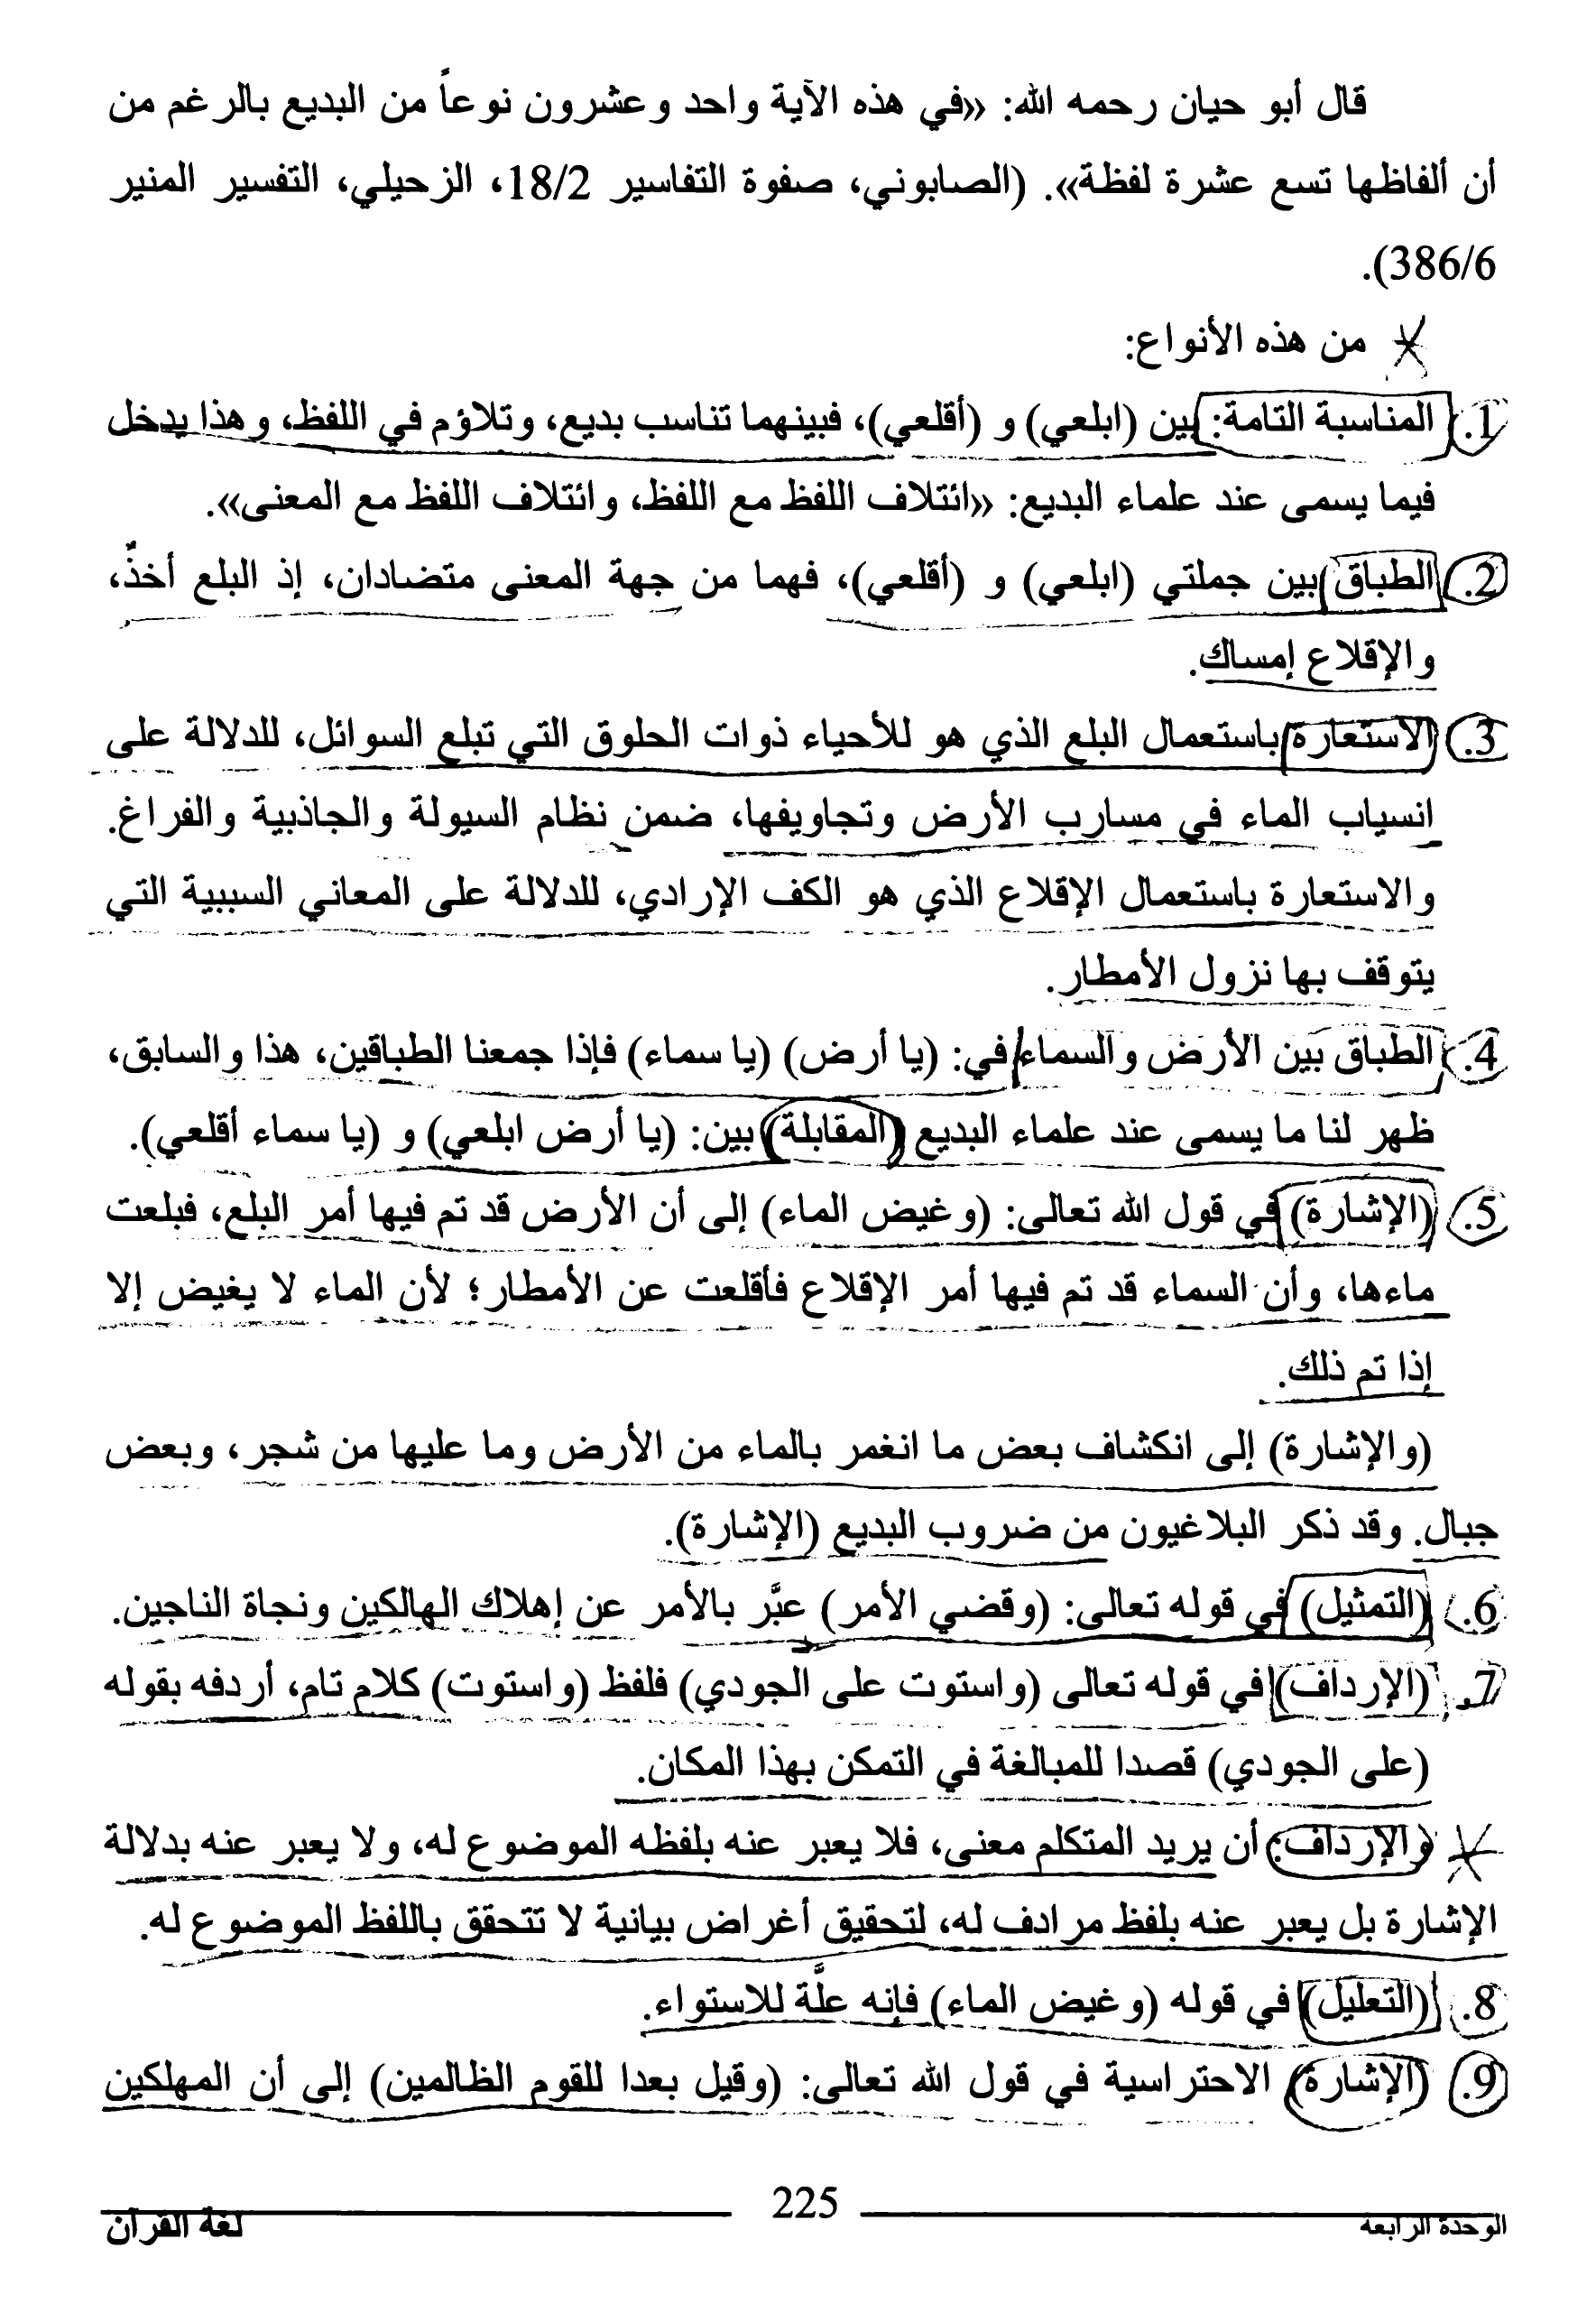 قال أبو حيان رحمه الله: «في هذه الآية واحد وعشرون نوعاً من البديع بالرغم من
أن ألفاظها تسع عشرة لفظة». (الصابوني، صفوة التفاسير 18/2، الزحيلي، التفسير المنير
386/6).
من هذه الأنواع:
1. المناسبة التامة: بين (ابلعي) و (أقلعي)، فبينهما تناسب بديع، وتلاؤم في اللفظ، وهذا يدخل
فيما يسمى عند علماء البديع: «ائتلاف اللفظ مع اللفظ، وائتلاف اللفظ مع المعنى».
2. الطباق بين جملتي (ابلعي) و (أقلعي)، فهما من جهة المعنى متضادان، إذ البلع أخذٌ،
والإقلاع إمساك.
3. الاستعارة باستعمال البلع الذي هو للأحياء ذوات الحلوق التي تبلع السوائل، للدلالة على
انسياب الماء في مسارب الأرض وتجاويفها، ضمن نظام السيولة والجاذبية والفراغ.
والاستعارة باستعمال الإقلاع الذي هو الكف الإرادي، للدلالة على المعاني السببية التي
يتوقف بها نزول الأمطار.
4. الطباق بين الأرض والسماء في: (يا أرض) (يا سماء) فإذا جمعنا الطباقين، هذا والسابق،
ظهر لنا ما يسمى عند علماء البديع (المقابلة) بين: (يا أرض ابلعي) و (يا سماء أقلعي).
5. (الإشارة) في قول الله تعالى: (وغيض الماء) إلى أن الأرض قد تم فيها أمر البلع، فبلعت
ماءها، وأن السماء قد تم فيها أمر الإقلاع فأقلعت عن الأمطار؛ لأن الماء لا يغيض إلا
إذا تم ذلك.
(والإشارة) إلى انكشاف بعض ما انغمر بالماء من الأرض وما عليها من شجر، وبعض
جبال. وقد ذكر البلاغيون من ضروب البديع (الإشارة).
6. (التمثيل) في قوله تعالى: (وقضي الأمر) عبَّر بالأمر عن إهلاك الهالكين ونجاة الناجين.
7. (الإرداف) في قوله تعالى (واستوت على الجودي) فلفظ (واستوت) كلام تام، أردفه بقوله
(على الجودي) قصدا للمبالغة في التمكن بهذا المكان.
والإرداف: أن يريد المتكلم معنى، فلا يعبر عنه بلفظه الموضوع له، ولا يعبر عنه بدلالة
الإشارة بل يعبر عنه بلفظ مرادف له، لتحقيق أغراض بيانية لا تتحقق باللفظ الموضوع له.
8. (التعليل) في قوله (وغيض الماء) فإنه علَّة للاستواء.
9. (الإشارة) الاحتراسية في قول الله تعالى: (وقيل بعدا للقوم الظالمين) إلى أن المهلكين
الوحدة الرابعة 225 لغة القرآن